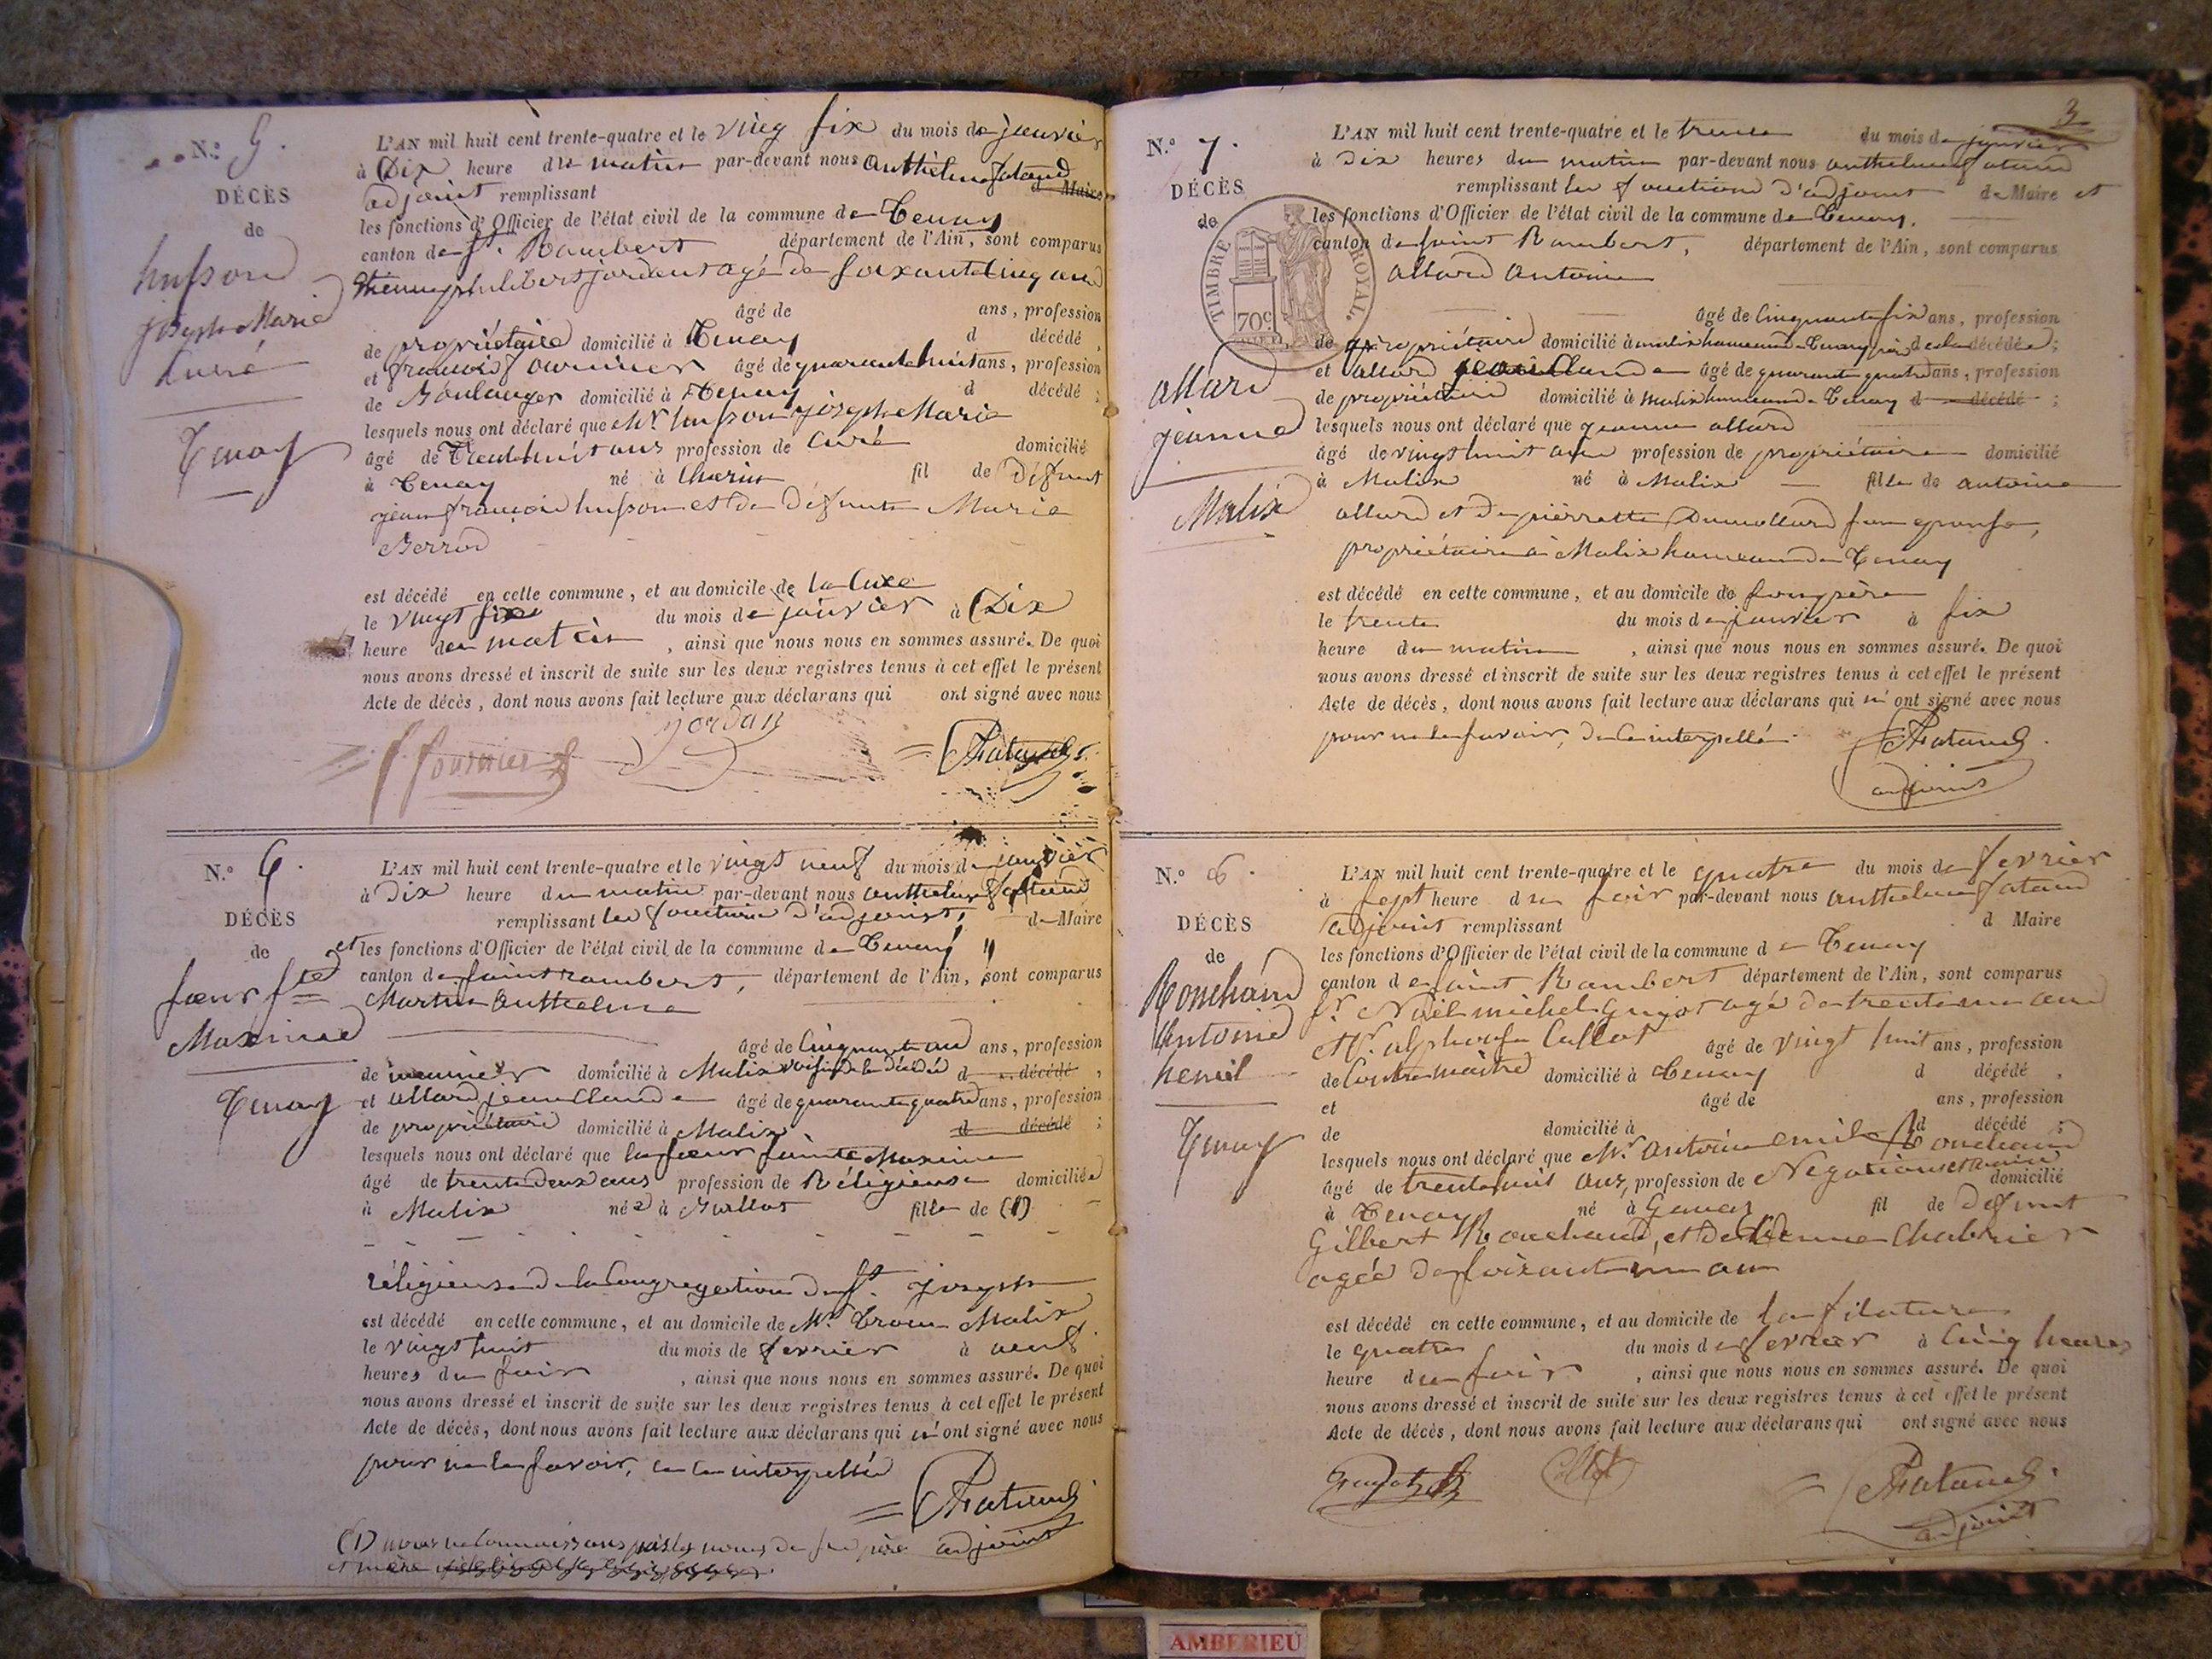 N.° 5.
DÉCÈS
de
husson
joseph Marie
Curé
Tenay
L'AN mil huit cent trente-quatre et le vingt six du mois de janvier
à Dix heure du matin par-devant nous Anthelme fatand
adjoint remplissant d Maire
les fonctions d'Officier de l'état civil de la commune de Tenay
canton de St. Rambert département de l'Ain, sont comparus
Etienne philibert jordan agé de soixante cinq ans
âgé de ans, profession
de propriétaire domicilié à Tenay d décédé,
et françois fournier âgé de quarante huit ans, profession
de Boulanger domicilié à Tenay d décédé;
lesquels nous ont déclaré que Mr husson joseph Marie
âgé de Trente huit ans profession de Curé domicilié
à Tenay né à fil de Défunt
jean françois husson et de Defunte Marie
est décédé en cette commune, et au domicile de la Cure
le vingt six du mois de janvier à Dix
heure du matin, ainsi que nous nous en sommes assuré. De quoi
nous avons dressé et inscrit de suite sur les deux registres tenus à cet effet le présent
Acte de décès, dont nous avons fait lecture aux déclarans qui ont signé avec nous
f fournier jordan fatand
N.° 6.
DÉCÈS
de
soeur ste
Maxime
Tenay
L'AN mil huit cent trente-quatre et le vingt neuf du mois de janvier
à Dix heure du matin par-devant nous anthelme fatand
remplissant les fonctions d'adjoint, de Maire
et les fonctions d'Officier de l'état civil de la commune de Tenay
canton de saint rambert, département de l'Ain, sont comparus
Martin Anthelme
âgé de Cinquante ans ans, profession
de meunier domicilié à Malix voisin de la décédée d décédé,
et allard jean Claude âgé de quarante quatre ans, profession
de propriétaire domicilié à Malix d décédé;
lesquels nous ont déclaré que la soeur sainte Maxime
âgé de trente deux ans profession de Réligieuse domiciliée
à Malix née à fille de (1)
réligieuse de la Congregation de St. joseph
est décédé en cette commune, et au domicile de Mr. Malix
le vingt huit du mois de fevrier à neuf
heures du soir, ainsi que nous nous en sommes assuré. De quoi
nous avons dressé et inscrit de suite sur les deux registres tenus à cet effet le présent
Acte de décès, dont nous avons fait lecture aux déclarans qui n'ont signé avec nous
pour ne le savoir, de ce interpellés
fatand
adjoint
(1) nous ne Connaissons pas les noms de ses père
et mère
3
N.° 7.
DÉCÈS
de
TIMBRE ROYAL.
70c
allard
jeanne
Malix
L'AN mil huit cent trente-quatre et le trente du mois de janvier
à Dix heures du matin par-devant nous anthelme fatand
remplissant les fonctions d'adjoint de Maire et
les fonctions d'Officier de l'état civil de la commune de Tenay.
canton de saint Rambert, département de l'Ain, sont comparus
allard Antoine
âgé de Cinquante six ans, profession
de propriétaire domicilié à malix hameau de Tenay père de la décédée;
et allard jean Claude âgé de quarante quatre ans, profession
de propriétaire domicilié à malix hameau de Tenay d décédé;
lesquels nous ont déclaré que jeanne allard
âgé de vingt huit ans profession de propriétaire domicilié
à Malix né à Malix fille de antoine
allard et de pierrette Dumollard son epouse,
propriétaire à Malix hameau de Tenay
est décédé en cette commune, et au domicile de son père
le trente du mois de janvier à six
heure du matin, ainsi que nous nous en sommes assuré. De quoi
nous avons dressé et inscrit de suite sur les deux registres tenus à cet effet le présent
Acte de décès, dont nous avons fait lecture aux déclarans qui n'ont signé avec nous
pour ne le savoir, de ce interpellé
fatand
adjoint
N.° 8.
DÉCÈS
de
Rouchaud
Antoine
Tenay
L'AN mil huit cent trente-quatre et le quatre du mois de fevrier
à sept heure du soir par-devant nous anthelme fatand
adjoint remplissant d Maire
les fonctions d'Officier de l'état civil de la commune de Tenay
canton de saint Rambert département de l'Ain, sont comparus
Sr. Noël michel Guyot agé de trente un ans
et Sr. alphonse Collot âgé de vingt huit ans, profession
de Contre maitre domicilié à Tenay d décédé,
et âgé de ans, profession
de domicilié à d décédé;
lesquels nous ont déclaré que Mr. Antoine emile Rouchaud
âgé de trente huit ans, profession de Négociant domicilié
à Tenay né à fil de Defunt
Gilbert Rouchaud, et de Chabrier
agée de soixante un ans
est décédé en cette commune, et au domicile de la filature
le quatre du mois de fevrier à Cinq heures
heure du soir, ainsi que nous nous en sommes assuré. De quoi
nous avons dressé et inscrit de suite sur les deux registres tenus à cet effet le présent
Acte de décès, dont nous avons fait lecture aux déclarans qui ont signé avec nous
Guyot Collot fatand
adjoint
AMBERIEU